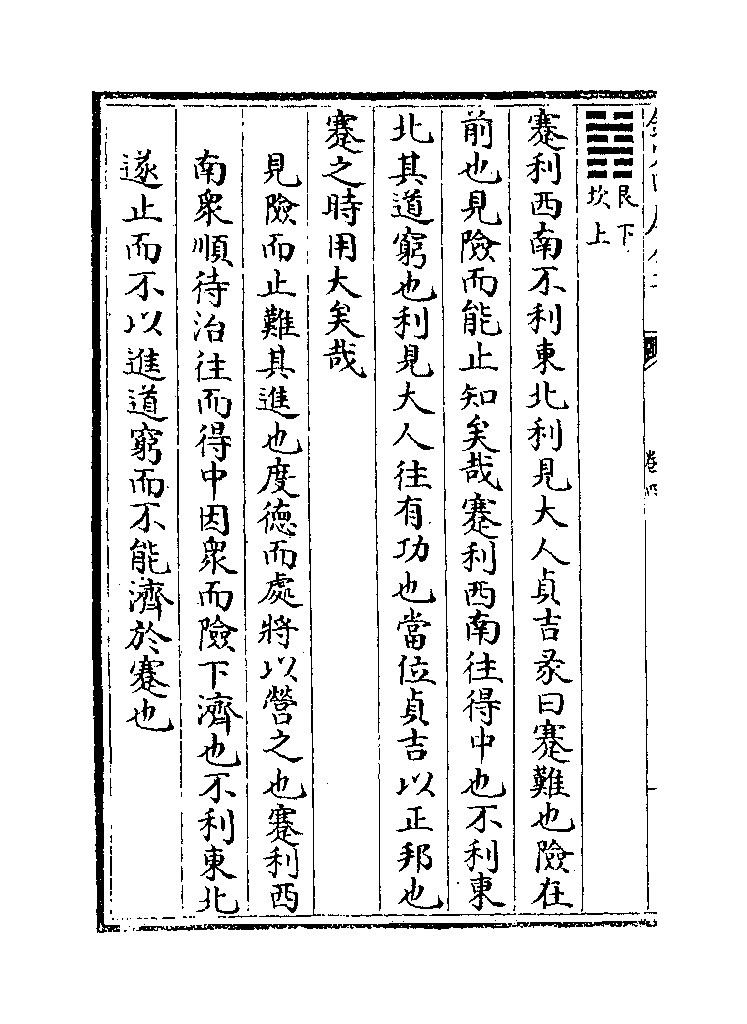 艮下
坎上
蹇利西南不利東北利見大人貞吉彖曰蹇難也險在
前也見險而能止知矣哉蹇利西南往得中也不利東
北其道窮也利見大人往有功也當位貞吉以正邦也
蹇之時用大矣哉
見險而止難其進也度德而處將以營之也蹇利西
南衆順待治往而得中因衆而險下濟也不利東北
遂止而不以進道窮而不能濟於蹇也